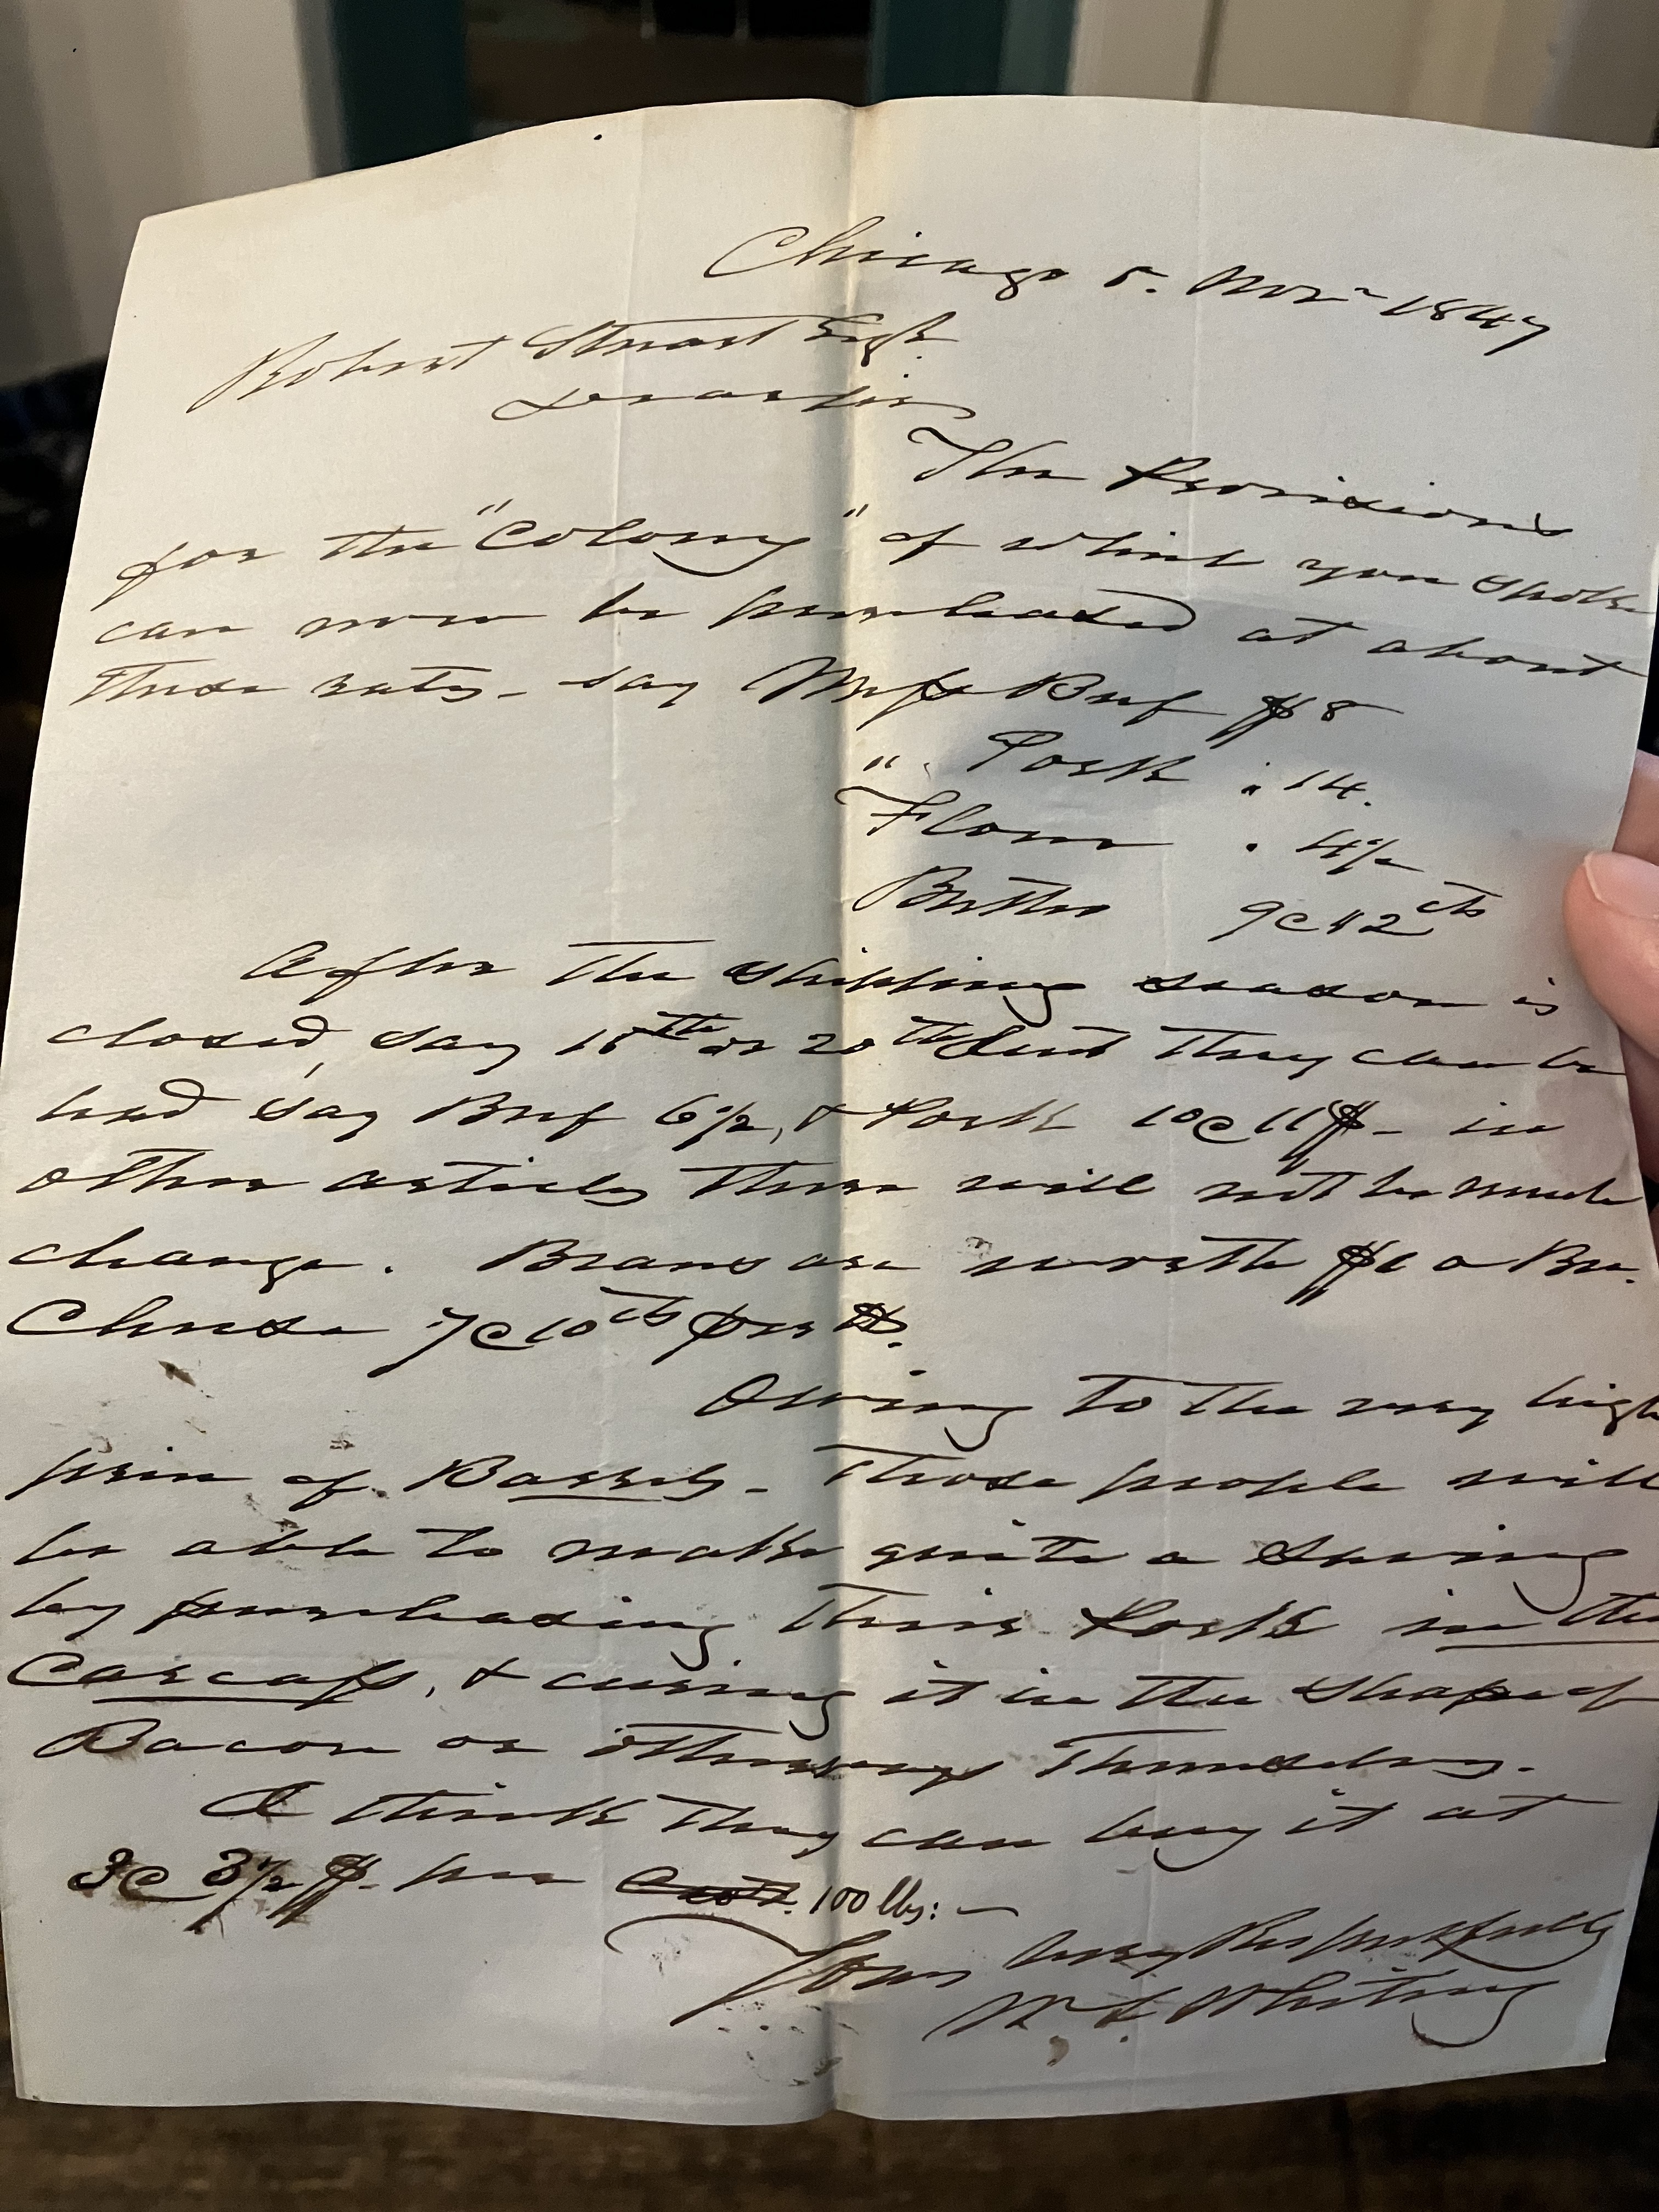 Chicago 5. Novr 1847
Robert Stuart Esqr.
Dear Sir
The Provisions
for the "Colony" of which you spoke
can now be purchased at about
these rates - say Mess Beef $8
" Pork " 14.
Flour . 4½
Butter 9@12cts
After the shipping season is
closed, say 15th or 20th Inst they can be
had say Beef 6½, & Pork 10@11$ - in
other articles there will not be much
change. Beans are worth $1 a Bu.
Cheese 7@10cts per lb.
Owing to the very high
price of Barrels - Those people will
be able to make quite a saving
by purchasing their Pork in the
Carcass, & curing it in the shape of
Bacon or otherways themselves.
I think they can buy it at
3@3½$ - per Cwt. 100 lbs: -
Yours very Respectfully
W. L Whiting